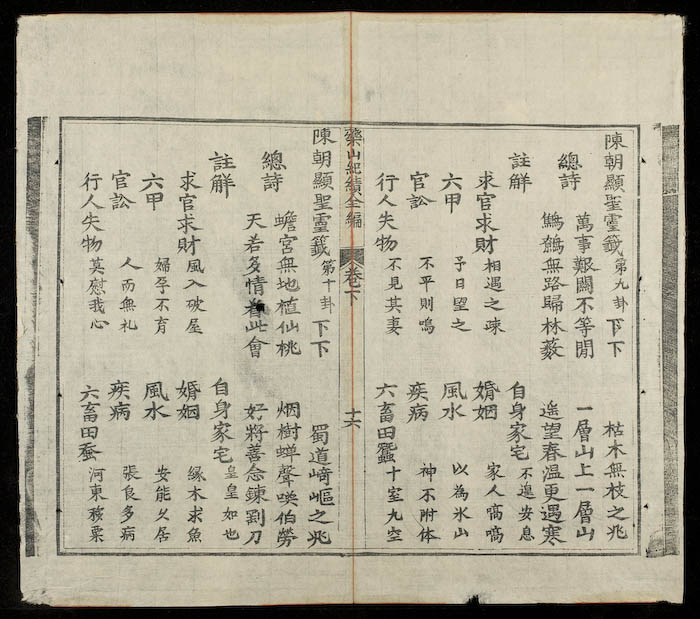 陳朝顯聖靈籤第九卦下下 枯木無枝之兆
總詩 萬事艱關不等閒 一層山上一層山
鷦鷯無路歸林藪 遥望春温更遇寒
註觧 自身家宅不遑安息
求官求財相遇之疎 婚姻家人嗃嗃
六甲予日望之 風水以為氷山
官訟不平則鳴 疾病神不附体
行人失物不見其妻 六畜田蠶十室九空
藥山紀績全編 卷下 十六
陳朝顯聖靈籤第十卦下下 蜀道崎嶇之兆
總詩 蟾宮無地植仙桃 烟樹蝉聲喚伯勞
天若多情着此會 好將善念鍊劉刀
註觧 自身家宅皇皇如也
求官求財風入破屋 婚姻緣木求魚
六甲婦孕不育 風水安能久居
官訟人而無礼 疾病張良多病
行人失物莫慰我心 六畜田蚕河東移粟